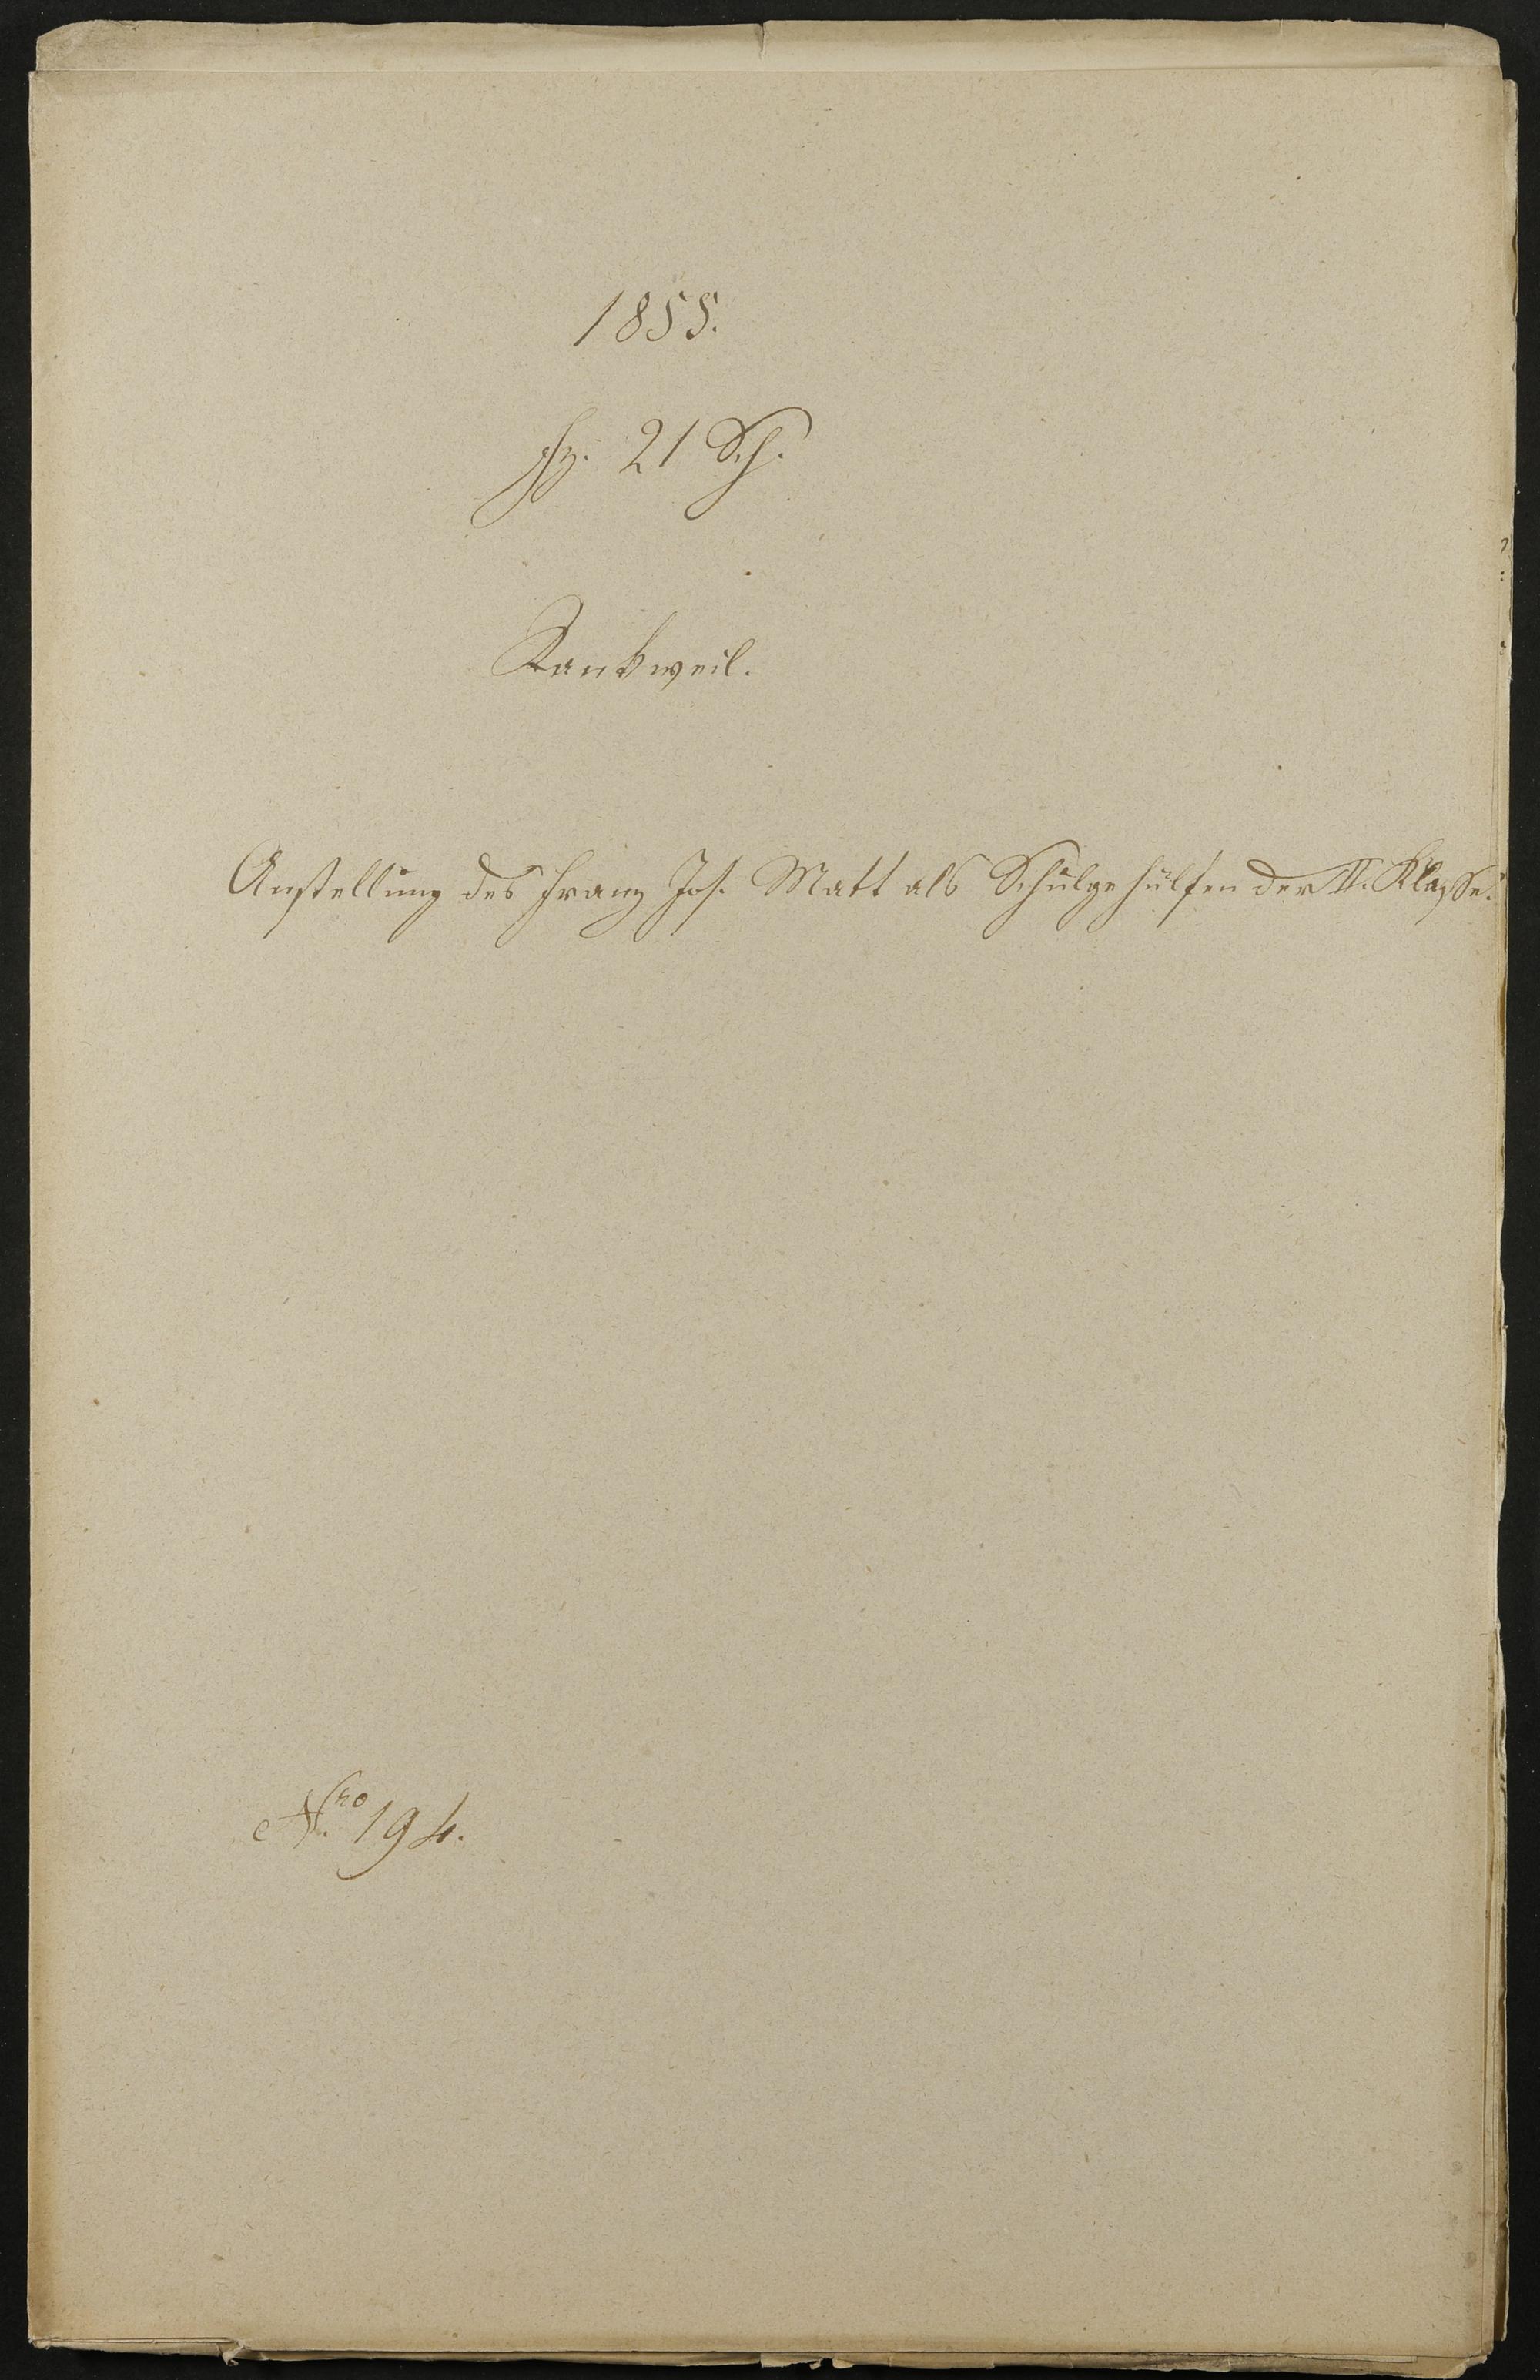 1855.
fz. 21 Sch.
Rankweil.
Anstellung des Franz Jos. Matt als Schulgehülfen der II. Klasse.
Nro 194.